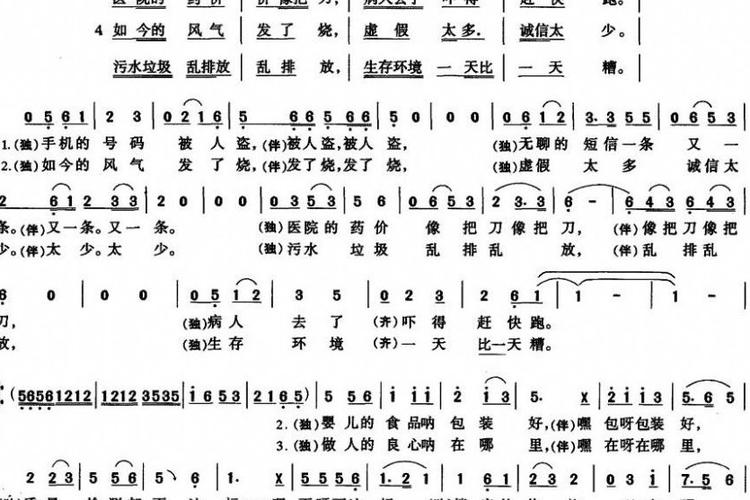 医院的 药价 价像把 刀， 病人去了 不得 赶 快 跑。
4 如今的 风气 发了 烧， 虚假 太多. 诚信太 少。
污水垃圾 乱排放 乱排 放， 生存环境 一天比 一天 糟。
0 5 6 1 2 3 0 2 1 6 5 6 6 5 6 6 5 0 0 0 0 6 1 2 3· 3 5 5 0 6 5 3
1.(独)手机的 号码 被人盗，(伴)被人盗，被人盗， (独)无聊的 短信一条 又一
2.(独)如今的 风气 发了烧，(伴)发了烧，发了烧， (独)虚假 太多 诚信太
2 6 1 2 3 3 2 0 0 0 0 3 5 3 5 6 6 0 6 5 3 2 3· 3 6 - 6 4 3 6 4 3
条。(伴)又一条。又一条。 (独)医院的 药价 像把刀像把刀， (伴)像把刀像把
少。(伴)太少。太少。 (独)污水 垃圾 乱排乱 放， (伴)乱排乱
6 0 0 0 0 5 1 2 3 5 0 2 3 2 6 1 1 - 1 -
刀， (独)病人 去了 (齐)吓得 赶快跑。
放， (独)生存 环境 (齐)一天 比一天糟。
(56561212 12123535 i 6 5 3 2 1 6 5) 5 5 6 i i i 2 i 3 5· X 2 i i 3 7· 6 5
2.(独)婴儿的 食品呐 包装 好，(伴)嘿 包呀包装好，
3.(独)做人的 良心呐 在哪 里，(伴)嘿 在呀在哪里，
2 2 3 5 5 6 5 6 1· X 5 5 5 5 1· 2 1 1 6 1 2 2